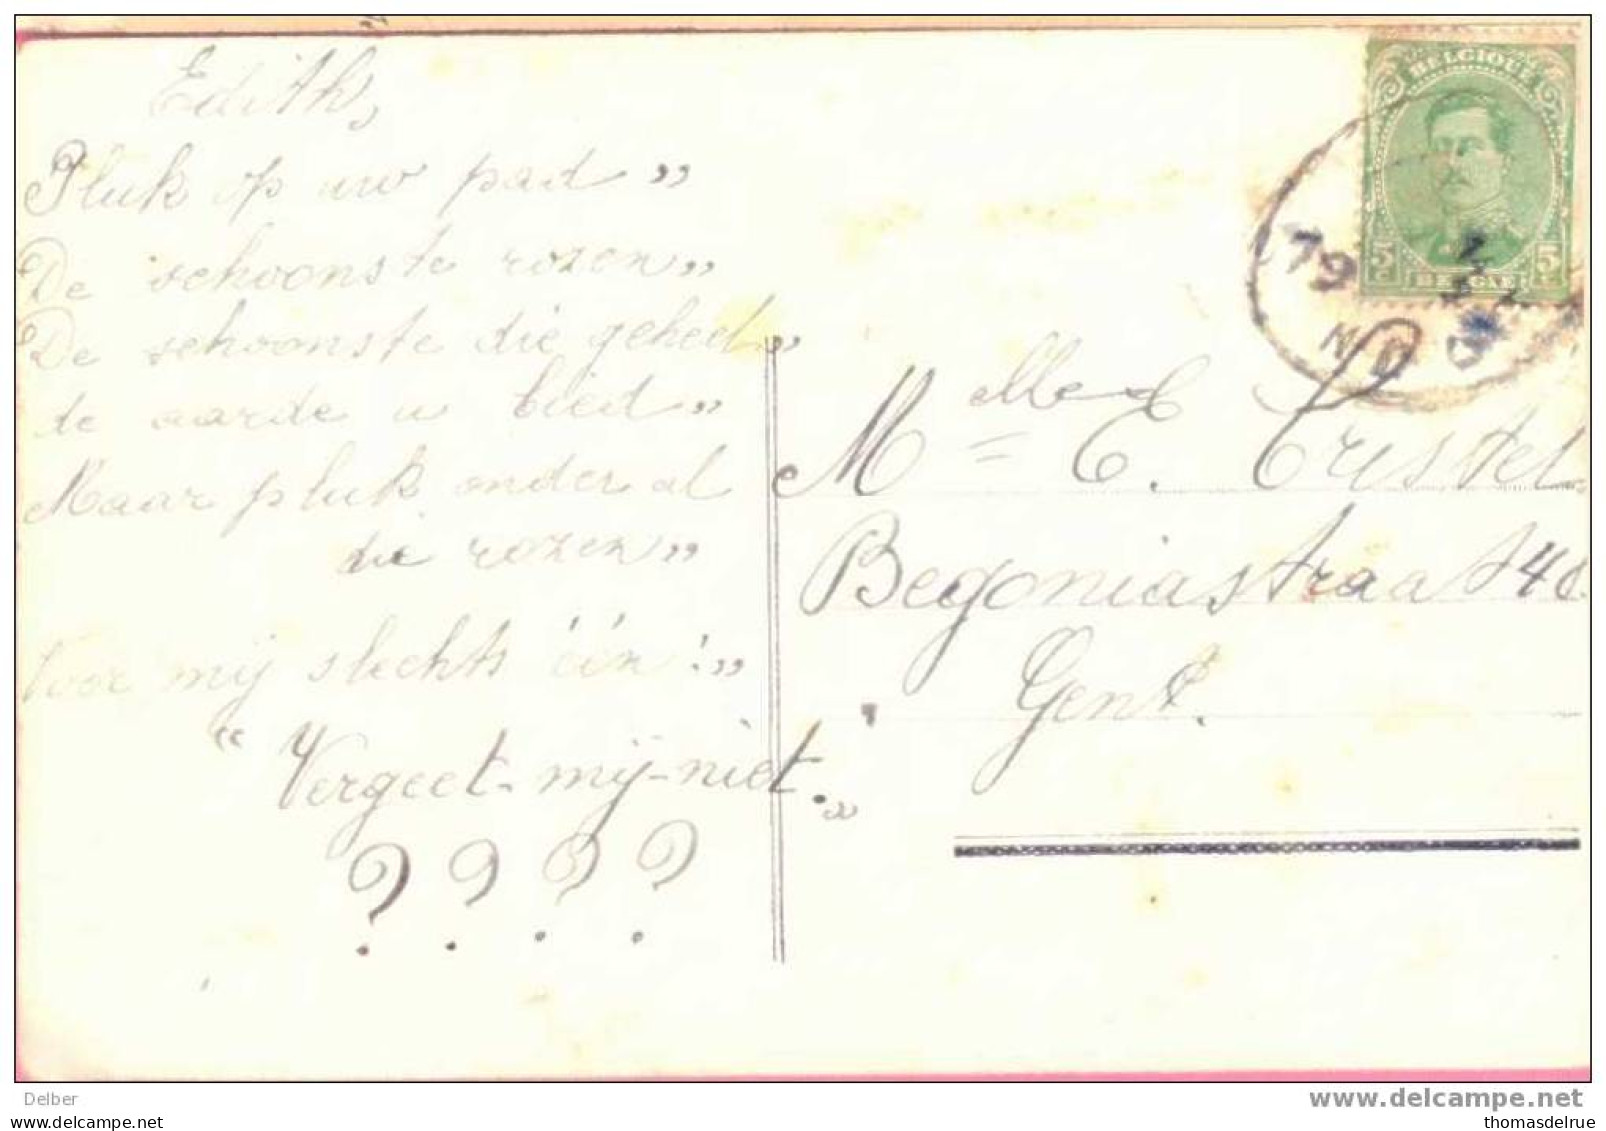 Edith,
Pluk op uw pad „
De schoonste rozen „
De schoonste die geheel „
de aarde u bied „
Maar pluk onder al
die rozen „
Voor mij slechts één! „
“Vergeet-mij-niet.„
? ? ? ?
BELGIQUE
5c 5c
BELGIE
19
Melle E.
Begoniastraat 48
Gent.
Delber
www.delcampe.net
thomasdelrue